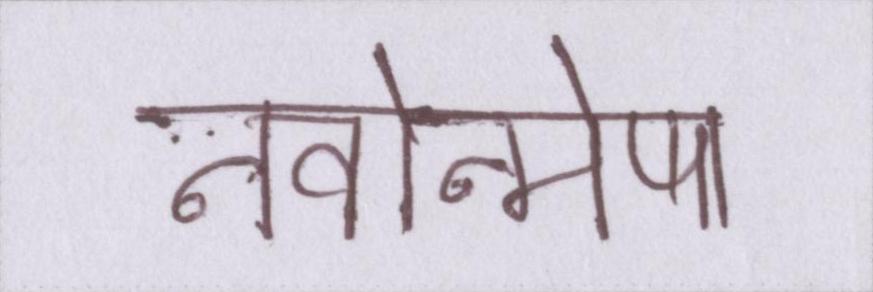 नवोन्मेषा